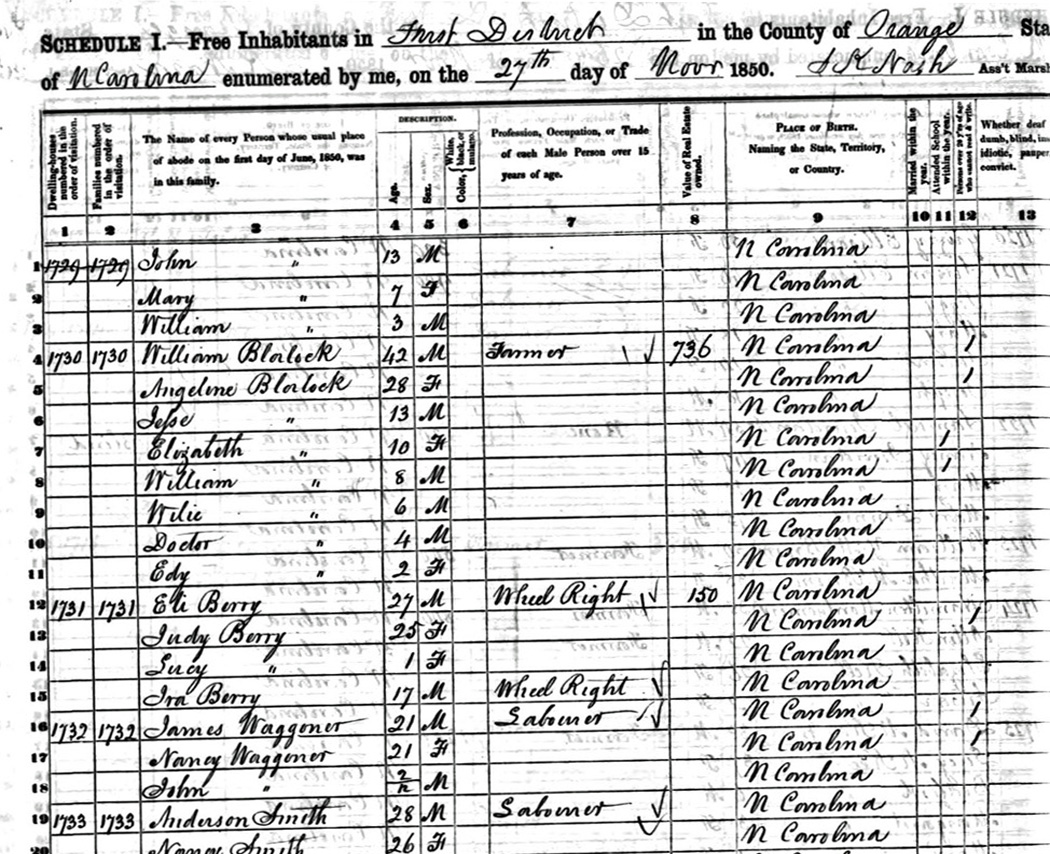 SCHEDULE I.—Free Inhabitants in First District in the County of Orange Sta
of N Carolina enumerated by me, on the 27th day of Novr 1850. Nash Ass't Marsh
Dwelling-houses numbered in the order of visitation.
Families numbered in the order of visitation.
The Name of every Person whose usual place of abode on the first day of June, 1850, was in this family.
DESCRIPTION.
Age.
Sex.
White, Color, black, or mulatto.
Profession, Occupation, or Trade of each Male Person over 15 years of age.
Value of Real Estate owned.
PLACE OF BIRTH. Naming the State, Territory, or Country.
Married within the year.
Attended School within the year.
Persons over 20 y'rs of age who cannot read & write.
Whether deaf dumb, blind, idiotic, pauper convict.
1 2 3 4 5 6 7 8 9 10 11 12 13
1 1729 1729 John " 13 M N Carolina
2 Mary " 7 F N Carolina
3 William " 3 M N Carolina
4 1730 1730 William Blorlock 42 M Farmer 736 N Carolina 1
5 Angelene Blorlock 28 F N Carolina 1
6 Jesse " 13 M N Carolina
7 Elizabeth " 10 F N Carolina 1
8 William " 8 M N Carolina 1
9 Wilie " 6 M N Carolina
10 Doctor " 4 M N Carolina
11 Edy " 2 F N Carolina
12 1731 1731 Eli Berry 27 M Wheel Right 150 N Carolina
13 Judy Berry 25 F N Carolina 1
14 Lucy " 1 F N Carolina
15 Ira Berry 17 M Wheel Right N Carolina
16 1732 1732 James Waggoner 21 M Labourer N Carolina 1
17 Nancy Waggoner 21 F N Carolina 1
18 John " M N Carolina
19 1733 1733 Anderson Smith 28 M Labourer N Carolina
20 Nancy Smith 26 F N Carolina